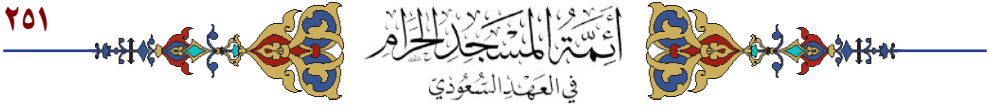 ٢٥١
أَئِمَّةُ المَسْجِدِ الحَرَامِ
في العَهْدِ السُّعُوْدِيّ